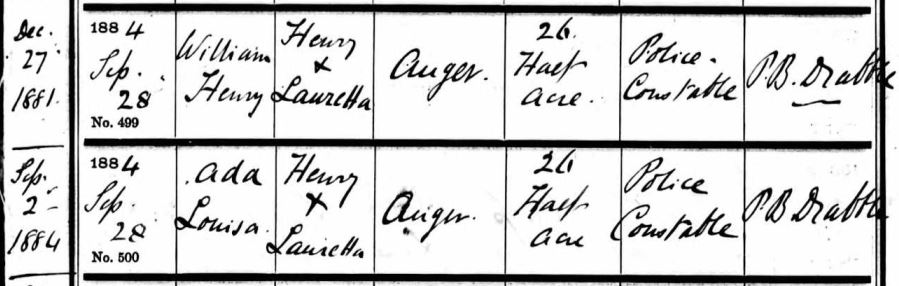 Dec.
27
1881.
1884
Sep.
28
No. 499
William
Henry
Henry
+
Lauretta
Auger.
26
Half
Acre.
Police
Constable
P.B. Drabble
Sep.
2
1884
1884
Sep.
28
No. 500
Ada
Louisa.
Henry
+
Lauretta
Auger.
26
Half
Acre
Police
Constable
P.B. Drabble